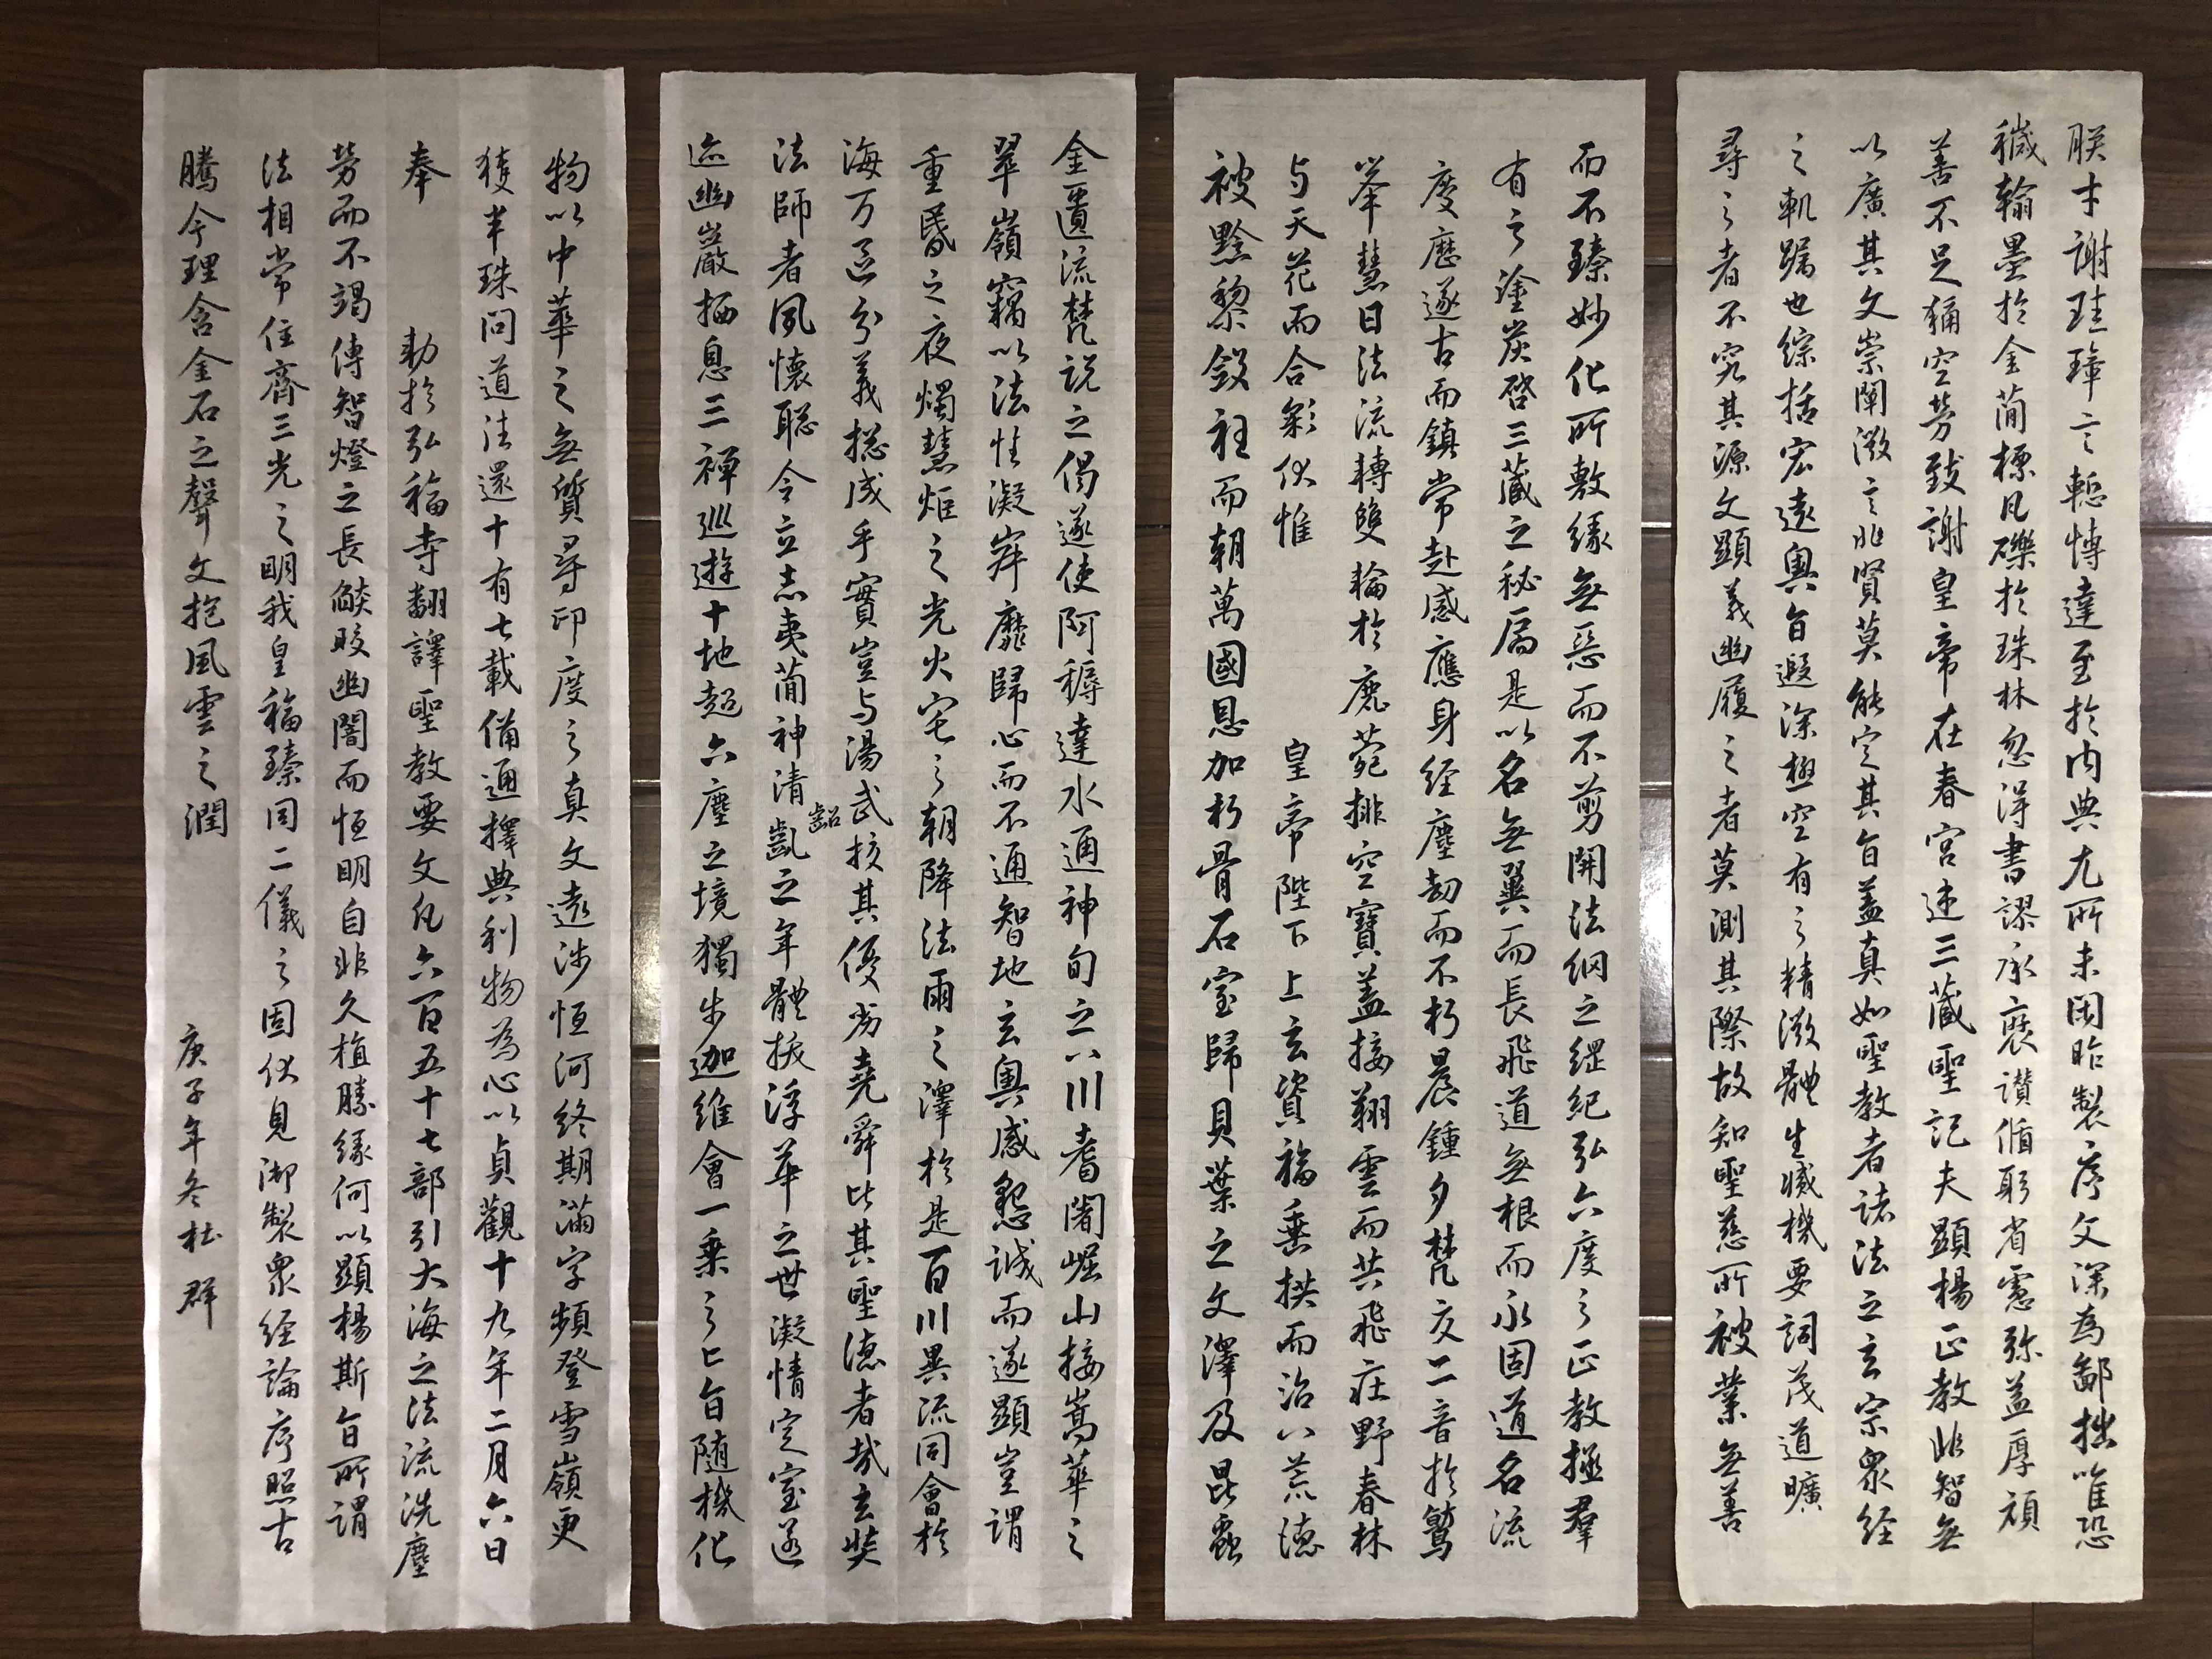 朕才謝珪璋言慙博達至於内典尤所未閑昨製序文深為鄙拙唯恐
穢翰墨於金簡標瓦礫於珠林忽得書謬承褒讚循躬省慮弥益厚顔
善不足稱空勞致謝皇帝在春宫述三藏聖記夫顯楊正教非智無
以廣其文崇闡微言非賢莫能定其旨盖真如聖教者諸法之玄宗衆經
之軌躅也綜括宏遠奥旨遐深極空有之精微體生滅機要詞茂道曠
尋之者不究其源文顯義幽履之者莫測其際故知聖慈所被業無善
而不臻妙化所敷緣無惡而不剪開法網之綱紀弘六度之正教拯羣
有之塗炭啓三藏之秘扃是以名無翼而長飛道無根而永固道名流
慶歷遂古而鎮常赴感應身經塵劫而不朽晨鍾夕梵交二音於鷲
峯慧日法流轉雙輪於鹿菀排空寶盖接翔雲而共飛莊野春林
与天花而合彩伏惟 皇帝陛下上玄資福垂拱而治八荒德
被黔黎斂衽而朝萬國恩加朽骨石室歸貝葉之文澤及昆蟲
金匱流梵説之偈遂使阿耨達水通神甸之八川耆闍崛山接嵩華之
翠嶺竊以法性凝寂靡歸心而不通智地玄奥感懇誠而遂顯豈謂
重昏之夜燭慧炬之光火宅之朝降法雨之澤於是百川異流同會於
海万區分義揔成乎實豈与湯武挍其優劣堯舜比其聖德者哉玄奘
法師者夙懷聡令立志夷簡神清齠齔之年體拔浮華之世凝情定室逷
迹幽巖栖息三禪巡遊十地超六塵之境獨步迦維會一乘之旨随機化
物以中華之無質尋印度之真文遠涉恒河終期滿字頻登雪嶺更
獲半珠問道法還十有七載備通擇典利物為心以貞觀十九年二月六日
奉 勅於弘福寺翻譯聖教要文凡六百五十七部引大海之法流洗塵
勞而不竭傳智燈之長燄皎幽闇而恒明自非久植勝緣何以顯楊斯旨所謂
法相常住齊三光之明我皇福臻同二儀之固伏見御製衆經論序照古
騰今理含金石之聲文抱風雲之潤 庚子年冬杜群